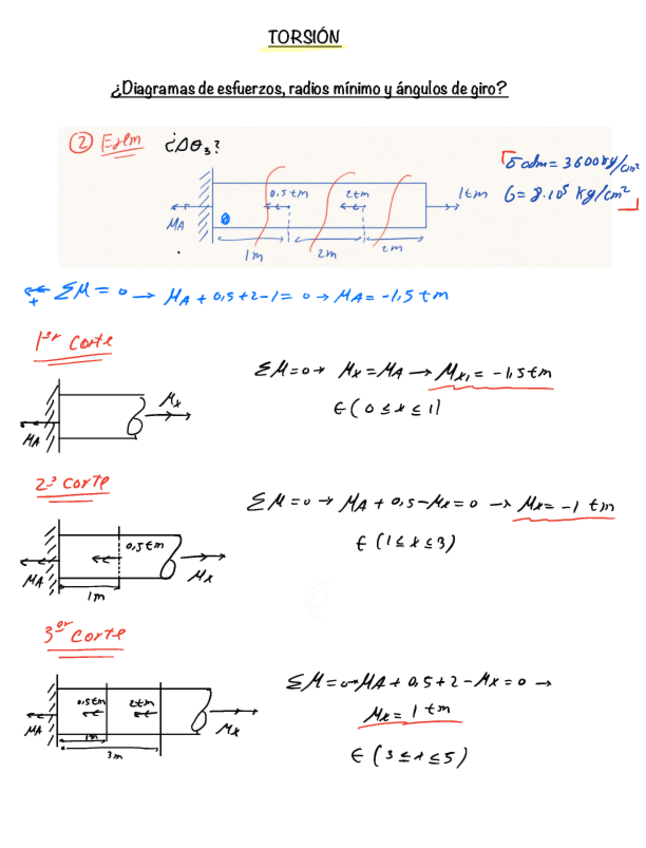 TORSIÓN
¿Diagramas de esfuerzos, radios mínimo y ángulos de giro?
② ¿Δθ₃?
σadm = 3600 kg/cm²
G = 8·10⁵ kg/cm²
0,5tm 2tm 1tm
MA
1m 2m 2m
ΣM = 0 → MA + 0,5 + 2 - 1 = 0 → MA = -1,5 tm
1er Corte
ΣM=0 → Mx = MA → Mx₁ = -1,5tm
∈ (0 ≤ x ≤ 1)
Mx
MA
2º Corte
ΣM = 0 → MA + 0,5 - Mx = 0 → Mx = -1 tm
∈ (1 ≤ x ≤ 3)
0,5tm
MA Mx
1m
3er Corte
ΣM = 0 → MA + 0,5 + 2 - Mx = 0 →
Mx = 1 tm
∈ (3 ≤ x ≤ 5)
0,5tm 2tm
MA Mx
1m
3m